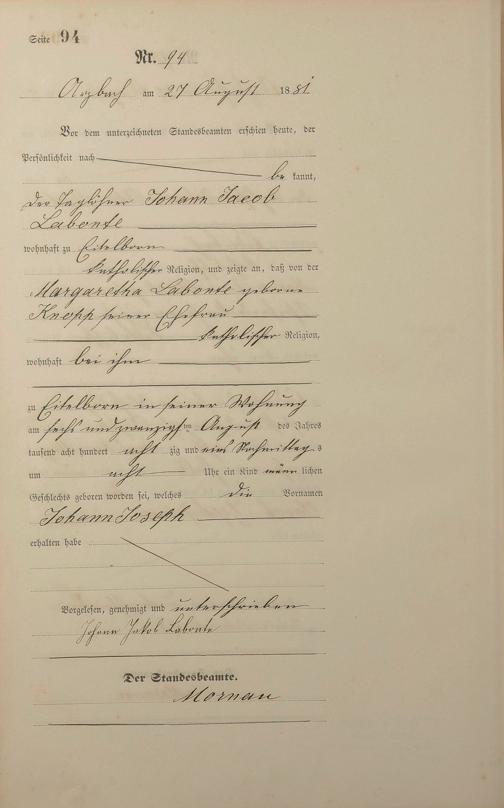 Seite 94
Nr. 94
Arzbach am 27 August 1881
Vor dem unterzeichneten Standesbeamten erschien heute, der
Persönlichkeit nach
be kannt,
der Taglöhner Johann Jacob
Labonte
wohnhaft zu Eitelborn
katholischer Religion, und zeigte an, daß von der
Margaretha Labonte geborne
Knopp seiner Ehefrau
katholischer Religion,
wohnhaft bei ihm
zu Eitelborn in seiner Wohnung
am sechs und zwanzigsten August des Jahres
tausend acht hundert acht zig und eins Nachmittags
um acht Uhr ein Kind männlichen
Geschlechts geboren worden sei, welches die Vornamen
Johann Joseph
erhalten habe
Vorgelesen, genehmigt und unterschrieben
Johann Jakob Labonte
Der Standesbeamte.
Mornau